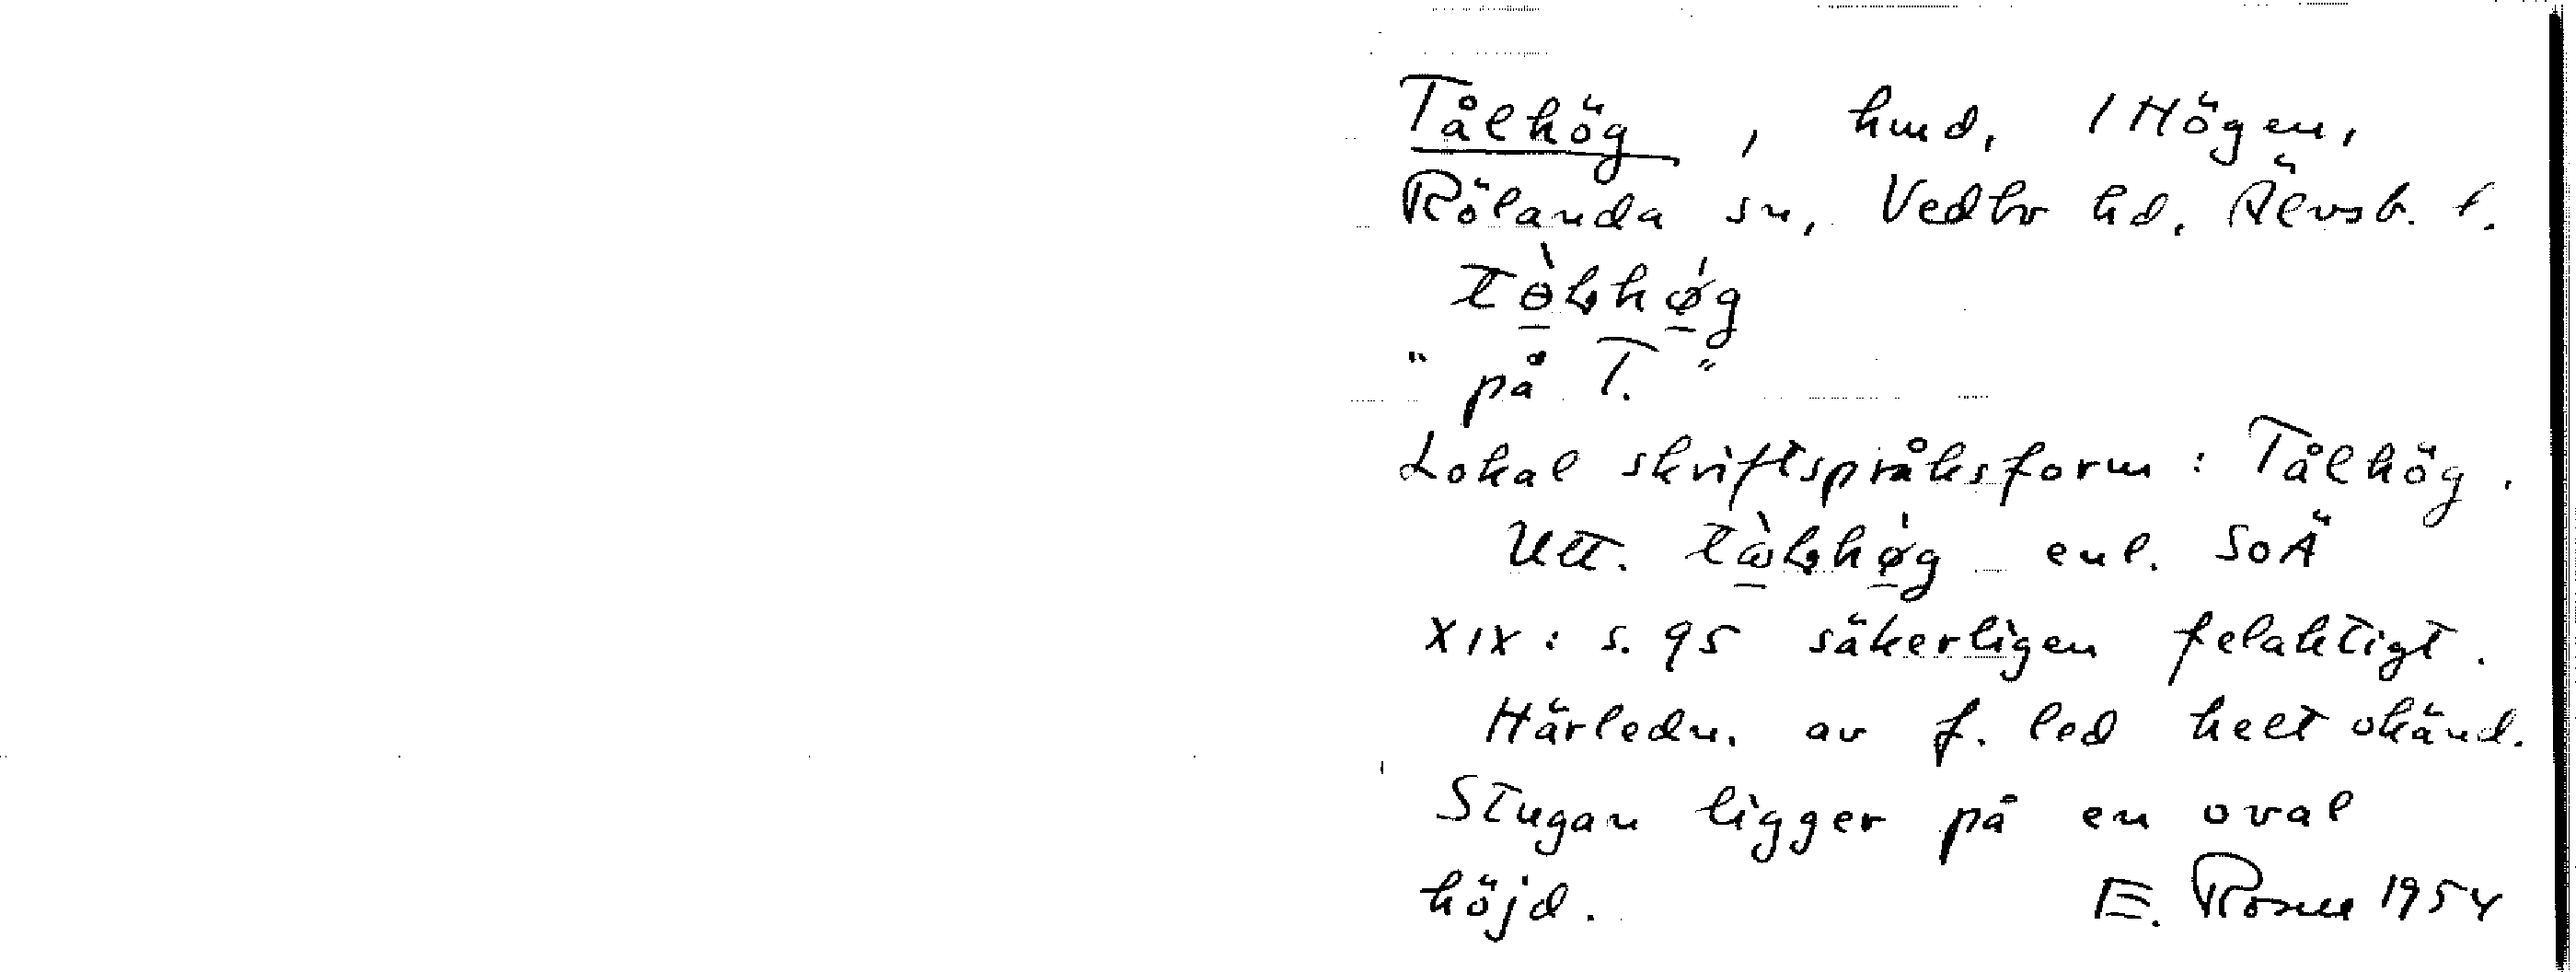 Tålhög, hmd, 1 Högen,
Rölanda sn, Vedbo hd, Älvsb. l.
"på T."
Lokal skriftspråksform: Tålhög.
Utt. enl. SoÄ
XIX: s. 95 säkerligen felaktigt.
Härledn. av f. led helt okänd.
Stugan ligger på en oval
höjd. E. 1954